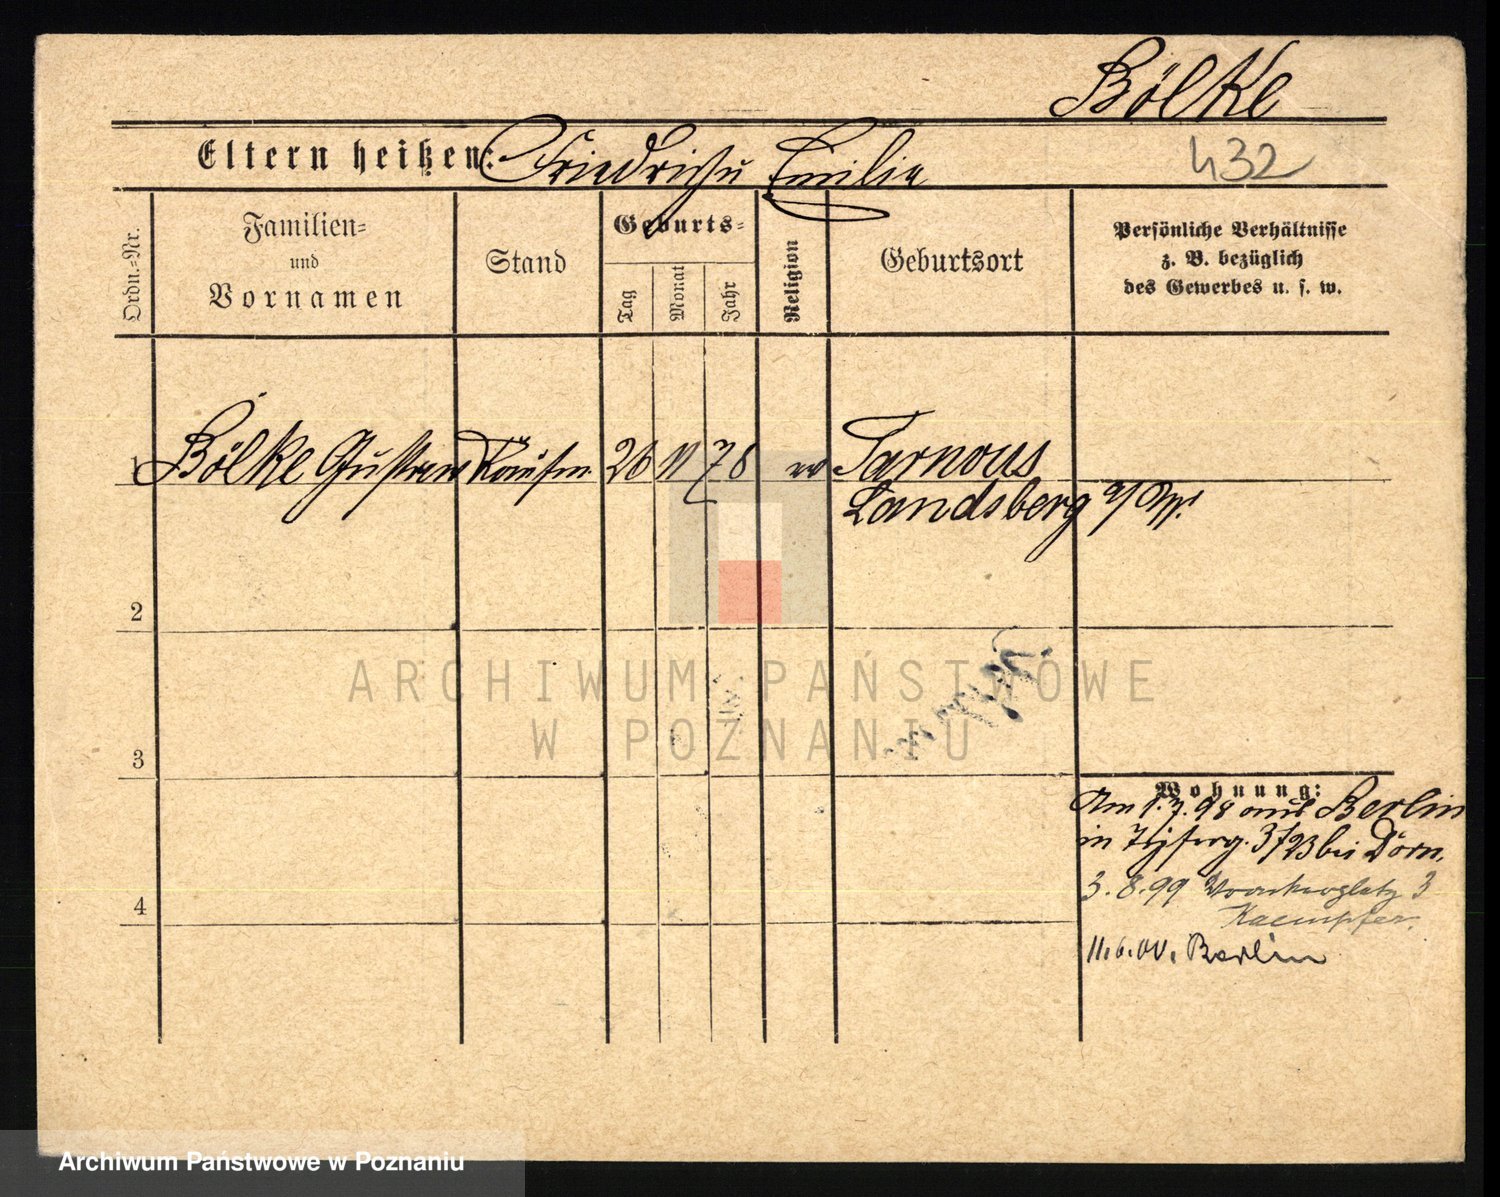 Bölke
432
Eltern heißen: Friedrich u Emilie
Ordn.-Nr.
Familien-
und
Vornamen
Stand
Geburts-
Tag
Monat
Jahr
Religion
Geburtsort
Persönliche Verhältnisse
z. B. bezüglich
des Gewerbes u. s. w.
1 Bölke Gustav Kaufm. 26 11 78 ev Tarnow
Landsberg a/W.
2
3
4
Wohnung:
Am 1.7.98 aus Berlin
in 3/ bei Dörn.
3.8.99 3
Kaempfer.
11.6.00. Berlin
ARCHIWUM PAŃSTWOWE
W POZNANIU
Archiwum Państwowe w Poznaniu